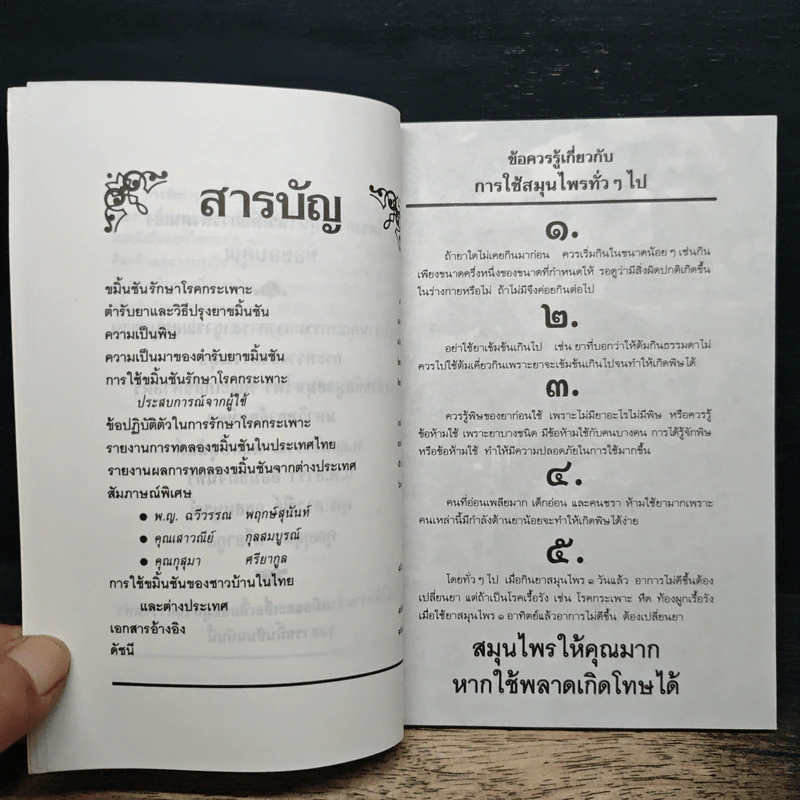 สารบัญ
ขมิ้นชันรักษาโรคกระเพาะ
ตำรับยาและวิธีปรุงยาขมิ้นชัน
ความเป็นพิษ
ความเป็นมาของตำรับยาขมิ้นชัน
การใช้ขมิ้นชันรักษาโรคกระเพาะ
ประสบการณ์จากผู้ใช้
ข้อปฏิบัติตัวในการรักษาโรคกระเพาะ
รายงานการทดลองขมิ้นชันในประเทศไทย
รายงานผลการทดลองขมิ้นชันจากต่างประเทศ
สัมภาษณ์พิเศษ
● พ.ญ. ฉวีวรรณ พฤกษ์สุนันท์
● คุณเสาวณีย์ กุลสมบูรณ์
● คุณกุสุมา ศรียากูล
การใช้ขมิ้นชันของชาวบ้านในไทย
และต่างประเทศ
เอกสารอ้างอิง
ดัชนี
ข้อควรรู้เกี่ยวกับ
การใช้สมุนไพรทั่ว ๆ ไป
๑.
ถ้ายาใดไม่เคยกินมาก่อน ควรเริ่มกินในขนาดน้อย ๆ เช่นกิน
เพียงขนาดครึ่งหนึ่งของขนาดที่กำหนดให้ รอดูว่ามีสิ่งผิดปกติเกิดขึ้น
ในร่างกายหรือไม่ ถ้าไม่มีจึงค่อยกินต่อไป
๒.
อย่าใช้ยาเข้มข้นเกินไป เช่น ยาที่บอกว่าให้ต้มกินธรรมดาไม่
ควรไปใช้ต้มเคี่ยวกินเพราะยาจะเข้มข้นเกินไปจนทำให้เกิดพิษได้
๓.
ควรรู้พิษของยาก่อนใช้ เพราะไม่มียาอะไรไม่มีพิษ หรือควรรู้
ข้อห้ามใช้ เพราะยาบางชนิด มีข้อห้ามใช้กับคนบางคน การได้รู้จักพิษ
หรือข้อห้ามใช้ ทำให้มีความปลอดภัยในการใช้มากขึ้น
๔.
คนที่อ่อนเพลียมาก เด็กอ่อน และคนชรา ห้ามใช้ยามากเพราะ
คนเหล่านี้มีกำลังต้านยาน้อยจะทำให้เกิดพิษได้ง่าย
๕.
โดยทั่ว ๆ ไป เมื่อกินยาสมุนไพร ๑ วันแล้ว อาการไม่ดีขึ้นต้อง
เปลี่ยนยา แต่ถ้าเป็นโรคเรื้อรัง เช่น โรคกระเพาะ หืด ท้องผูกเรื้อรัง
เมื่อใช้ยาสมุนไพร ๑ อาทิตย์แล้วอาการไม่ดีขึ้น ต้องเปลี่ยนยา
สมุนไพรให้คุณมาก
หากใช้พลาดเกิดโทษได้